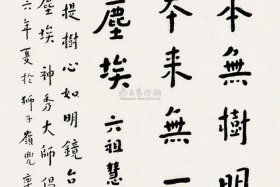 本無樹明
本来無一
塵埃 六祖慧
提樹心如明鏡台
塵埃 神秀大師偈
六年夏於獅子嶺兜率